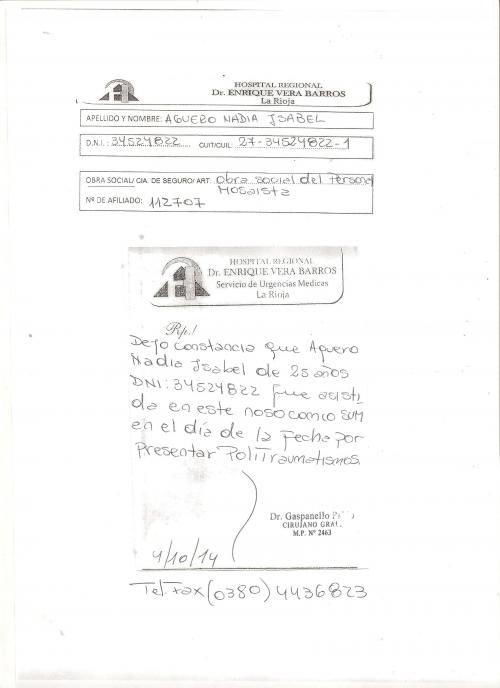 HOSPITAL REGIONAL
Dr. ENRIQUE VERA BARROS
La Rioja
APELLIDO Y NOMBRE: AGUERO NADIA ISABEL
D.N.I.: 34524822 CUIT/CUIL: 27-34524822-1
OBRA SOCIAL/ CIA. DE SEGURO/ ART: Obra social del Personal
Mosaista
Nº DE AFILIADO: 112707
HOSPITAL REGIONAL
Dr. ENRIQUE VERA BARROS
Servicio de Urgencias Medicas
La Rioja
Rp./
Dejo constancia que Aguero
Nadia Isabel de 25 años
DNI: 34524822 fue asisti
da en este nosocomio SUM
en el día de la Fecha por
Presentar PoliTraumatismos.
Dr. Gaspanello
CIRUJANO GRAL.
M.P. Nº 2463
9/10/14
Tel. Fax (0380) 4436823